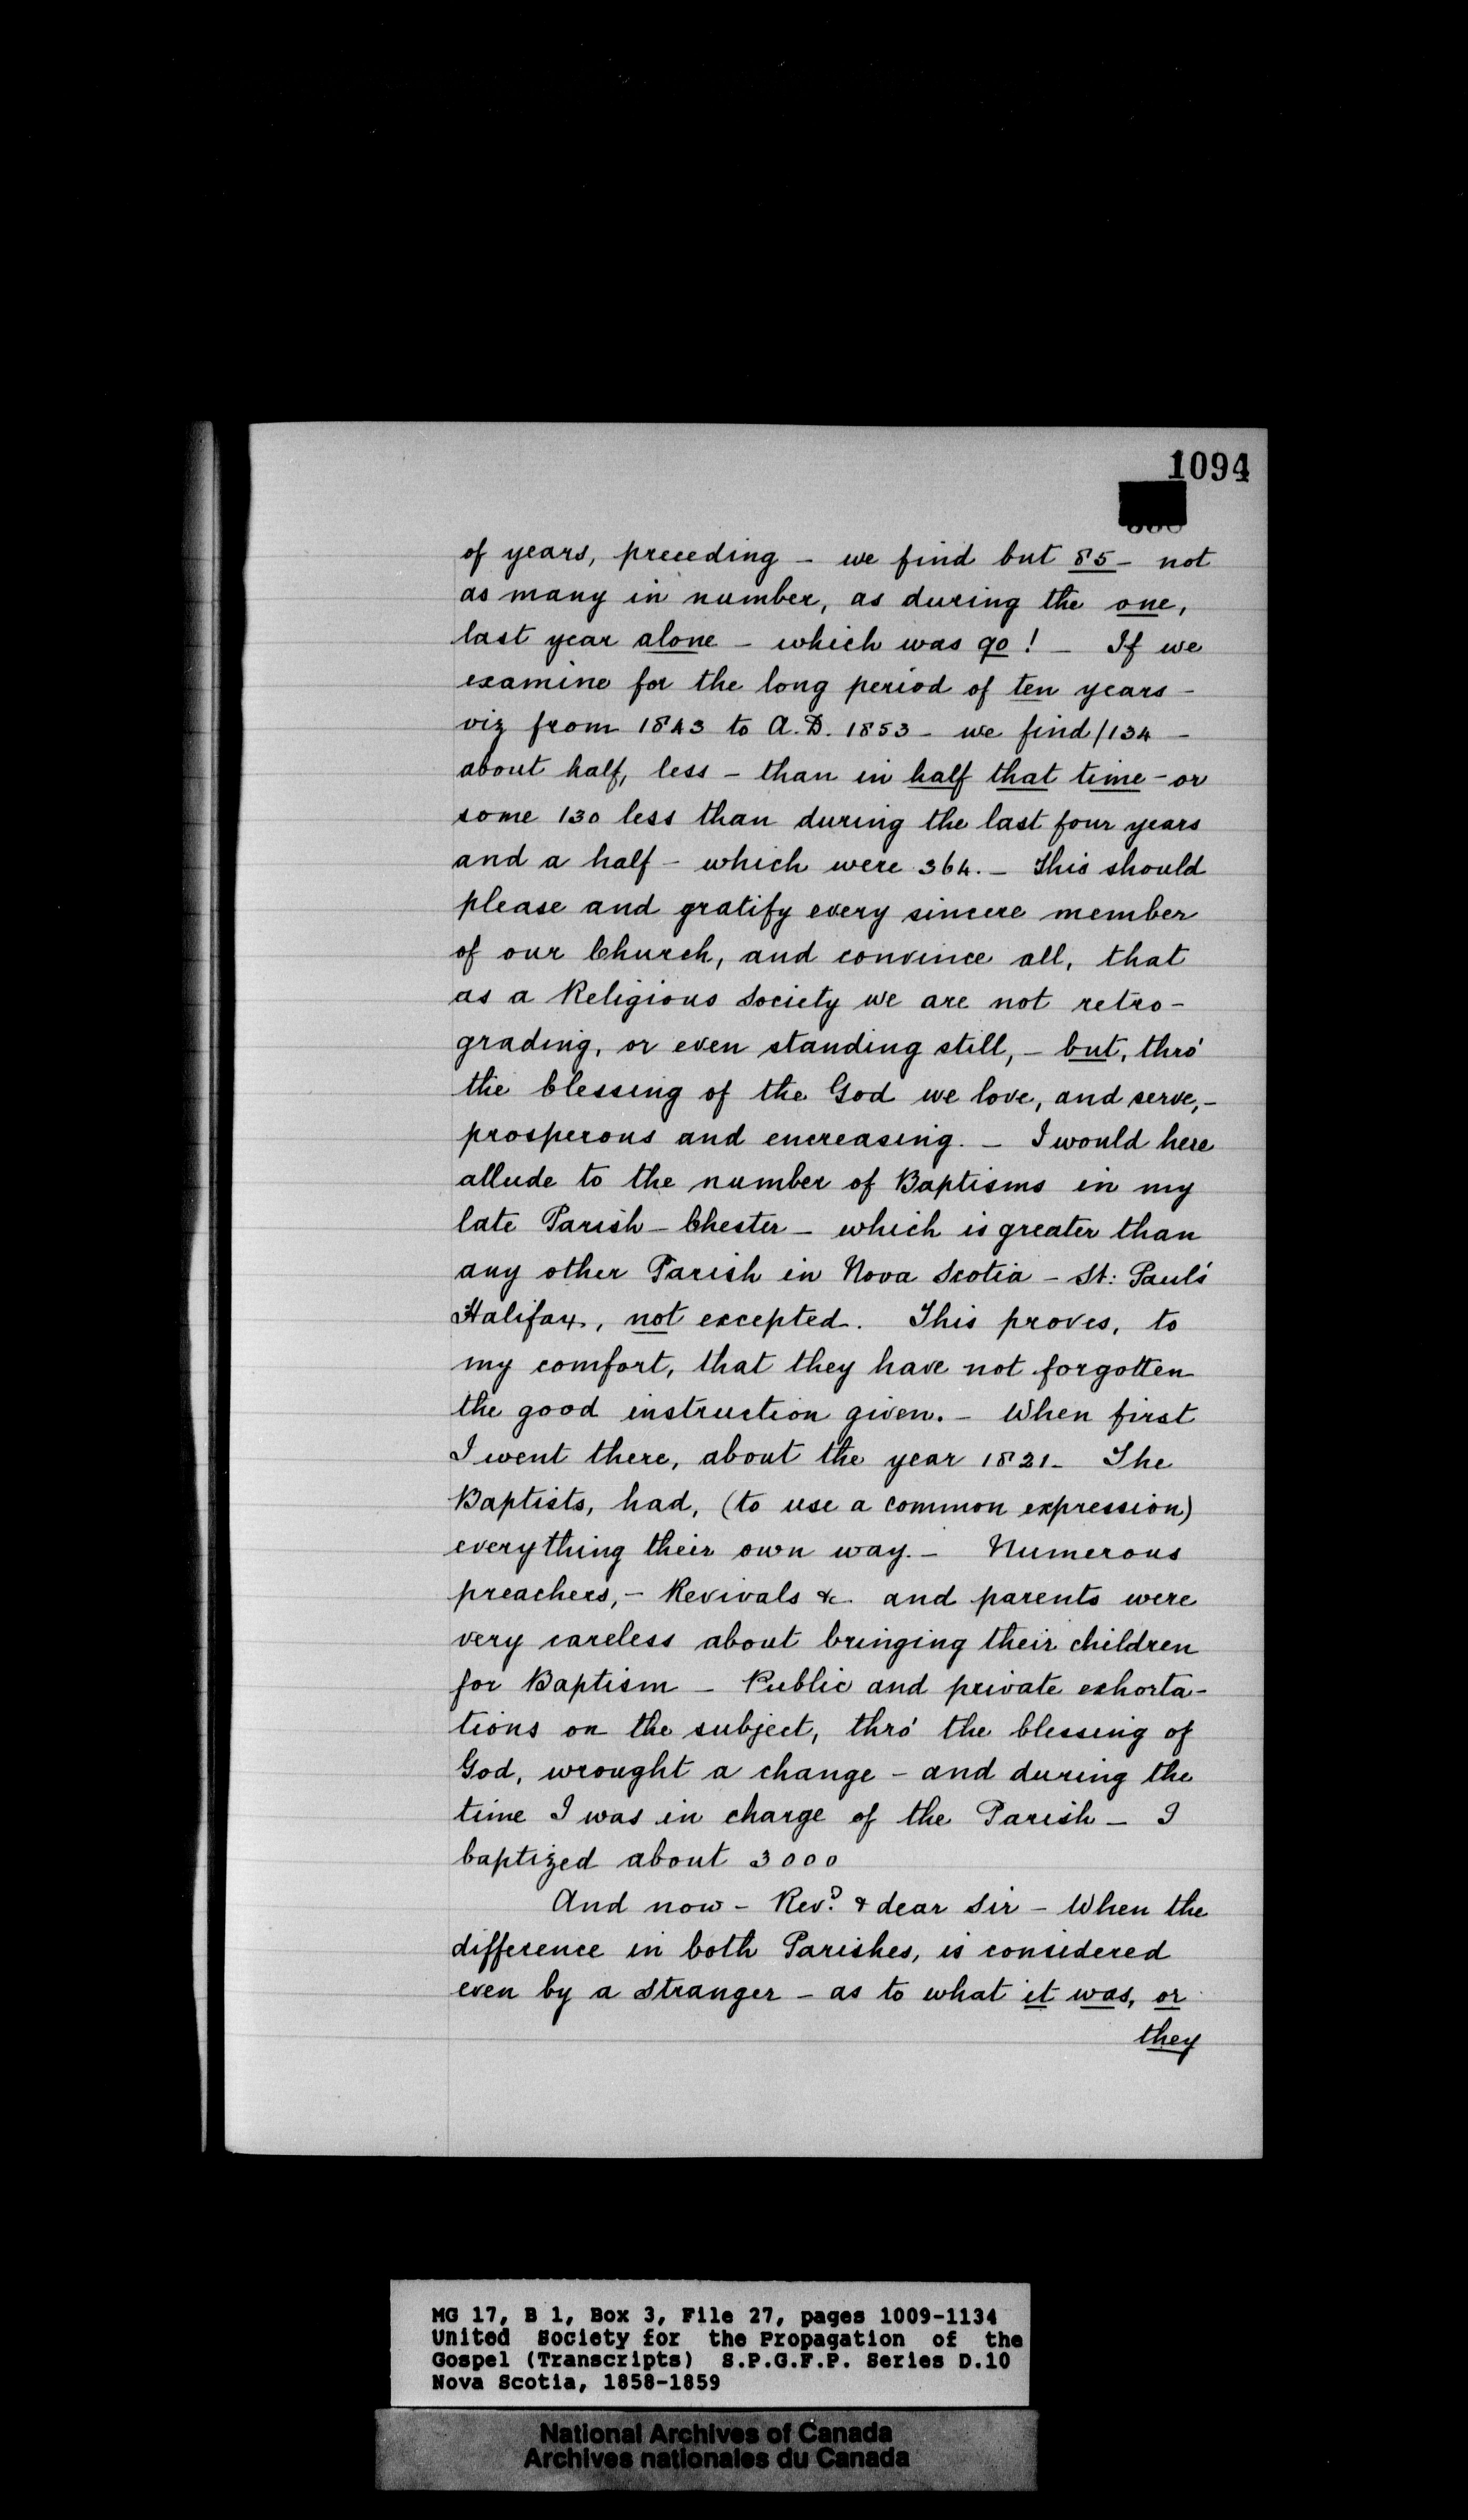 1094
of years, preceding - we find but 85 - not
as many in number, as during the one,
last year alone - which was 90! - If we
examine for the long period of ten years -
viz from 1843 to A.D. 1853 - we find /134 -
about half, less - than in half that time - or
some 130 less than during the last four years
and a half - which were 364. - This should
please and gratify every sincere member
of our Church, and convince all, that
as a Religious Society we are not retro-
grading, or even standing still, - but, thro'
the blessing of the God we love, and serve, -
prosperous and encreasing. - I would here
allude to the number of Baptisms in my
late Parish - Chester - which is greater than
any other Parish in Nova Scotia - St: Paul's
Halifax, not excepted. This proves, to
my comfort, that they have not forgotten
the good instruction given. - When first
I went there, about the year 1821 - The
Baptists, had, (to use a common expression)
everything their own way. - Numerous
preachers, - Revivals &c. and parents were
very careless about bringing their children
for Baptism - Public and private exhorta-
tions on the subject, thro' the blessing of
God, wrought a change - and during the
time I was in charge of the Parish - I
baptized about 3000
And now - Revd. & dear Sir - When the
difference in both Parishes, is considered
even by a Stranger - as to what it was, or
they
MG 17, B 1, Box 3, File 27, pages 1009-1134
United Society for the Propagation of the
Gospel (Transcripts) S.P.G.F.P. Series D.10
Nova Scotia, 1858-1859
National Archives of Canada
Archives nationales du Canada